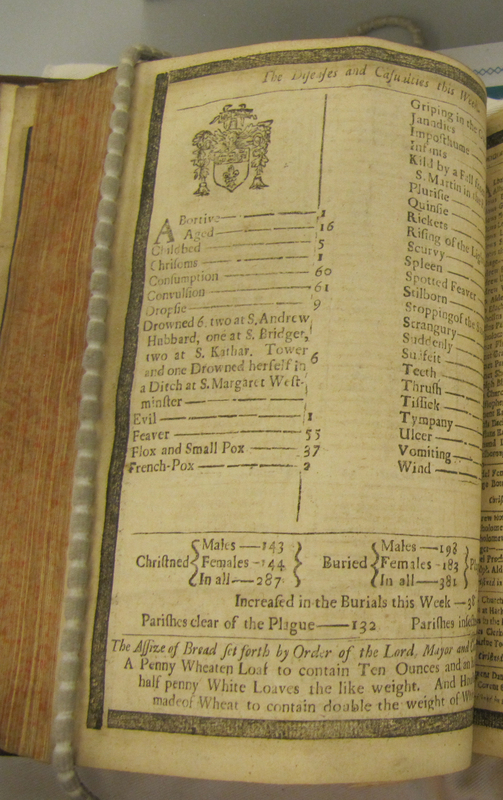 The Diseases and Casualties this Week
ABortive 1
Aged 16
Childbed 5
Chrisoms 1
Consumption 60
Convulsion 61
Dropsie 9
Drowned 6. two at S. Andrew
Hubbard, one at S. Bridget,
two at S. Kathar. Tower
and one Drowned herself in 6
a Ditch at S. Margaret West-
minster
Evil 1
Feaver 55
Flox and Small Pox 37
French-Pox 2
Griping in the
Jaundies
Imposthume
Infants
Kild by a Fall
S. Martin in the
Plurisie
Quinsie
Rickets
Rising of the
Scurvy
Spleen
Spotted Feaver
Stilborn
Stopping of the
Strangury
Suddenly
Surfeit
Teeth
Thrush
Tissick
Tympany
Ulcer
Vomiting
Wind
Christned { Males 143 Females 144 In all 287 }
Buried { Males 198 Females 183 In all 381 }
Increased in the Burials this Week 38
Parishes clear of the Plague 132 Parishes
The Assize of Bread set forth by Order of the Lord, Mayor and
A Penny Wheaten Loaf to contain Ten Ounces and an
half penny White Loaves the like weight. And
made of Wheat to contain double the weight of